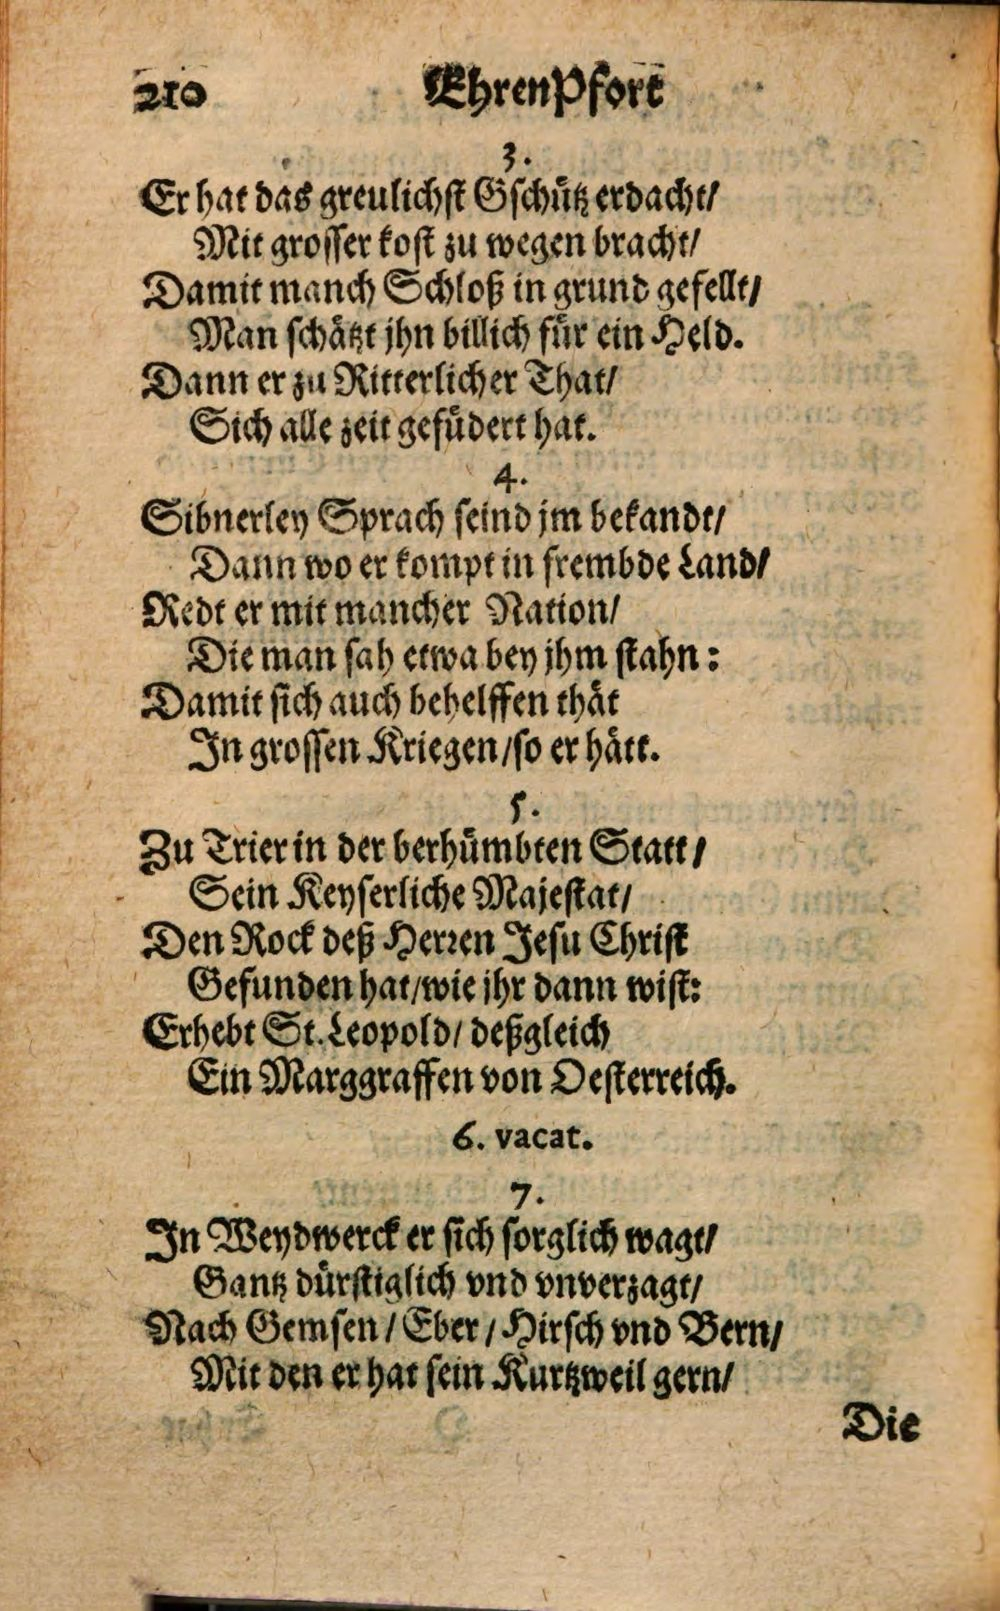 210 EhrenPfort
3.
Er hat das greulichst Gschütz erdacht/
Mit grosser kost zu wegen bracht/
Damit manch Schloß in grund gefellt/
Man schätzt jhn billich für ein Held.
Dann er zu Ritterlicher That/
Sich alle zeit gefüdert hat.
4.
Sibnerley Sprach seind jm bekandt/
Dann wo er kompt in frembde Land/
Redt er mit mancher Nation/
Die man sah etwa bey jhm stahn:
Damit sich auch behelffen thät
In grossen Kriegen/so er hätt.
5.
Zu Trier in der berhümbten Statt/
Sein Keyserliche Majestat/
Den Rock deß Herren Jesu Christ
Gefunden hat/wie jhr dann wist:
Erhebt St. Leopold/ deßgleich
Ein Marggraffen von Oesterreich.
6. vacat.
7.
In Weydwerck er sich sorglich wagt/
Gantz dürstiglich vnd vnverzagt/
Nach Gemsen/ Eber/ Hirsch vnd Bern/
Mit den er hat sein Kurtzweil gern/
Die